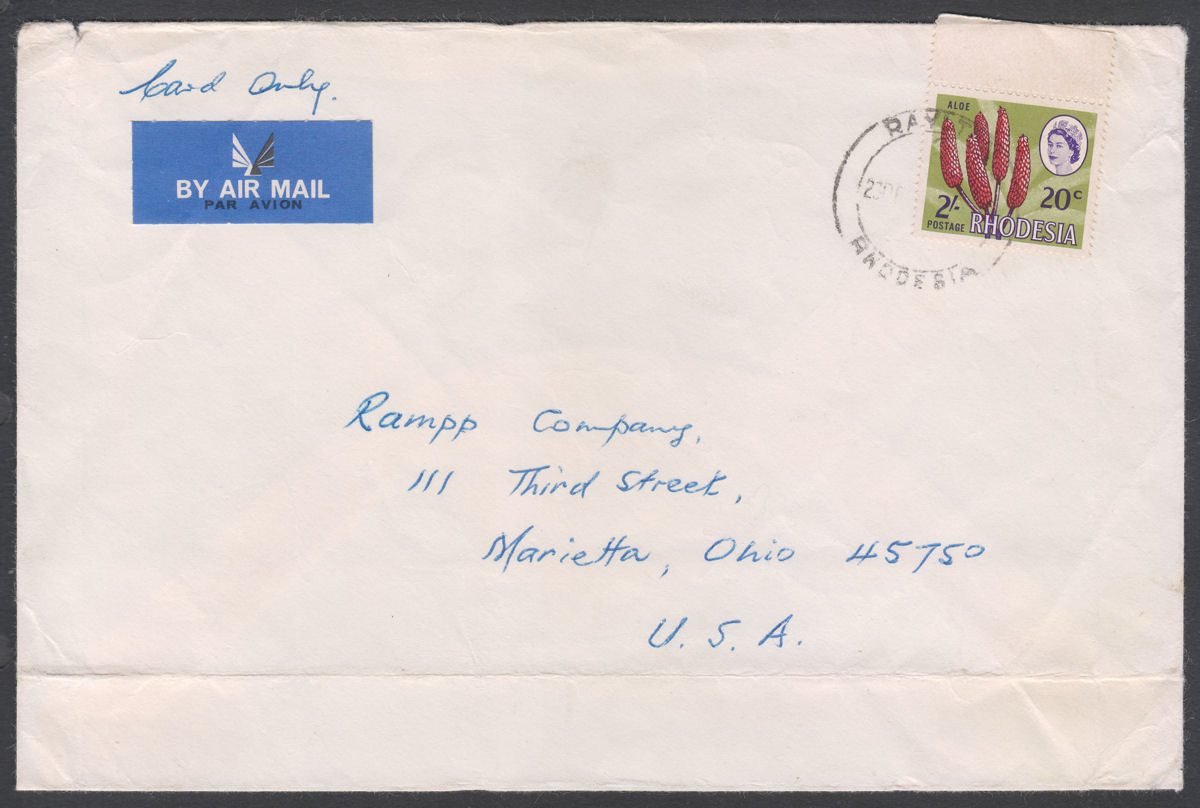 Card Only.
BY AIR MAIL
PAR AVION
ALOE
2/-
20c
POSTAGE
RHODESIA
RHODESIA
Rampp Company,
111 Third Street,
Marietta, Ohio 45750
U. S. A.